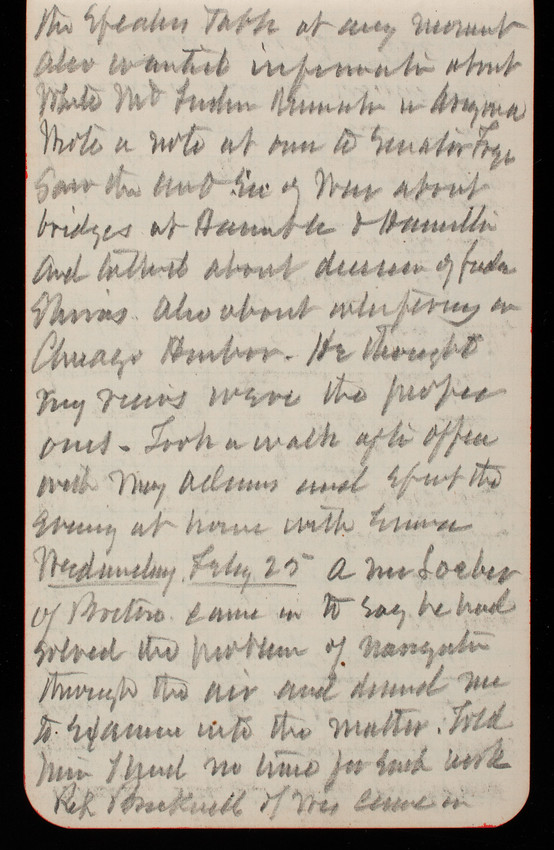 the Speakers Table at any moment
also wanted information about
White Mt Indian Reservation in Arizona
Wrote a note at once to Senator
Saw the and Sec of War about
bridges at & Hamilton
and talked about decision of
also about in
Chicago Harbor. He thought
my views were the proper
ones. Took a walk after office
with Maj Adams and spent the
evening at home with Emma
Wednesday Feby 25 A Mr Loeber
of Boston came in to say he had
solved the problem of navigation
through the air and desired me
to examine into the matter. Told
him I had no time for such work
Rep of Wis came in